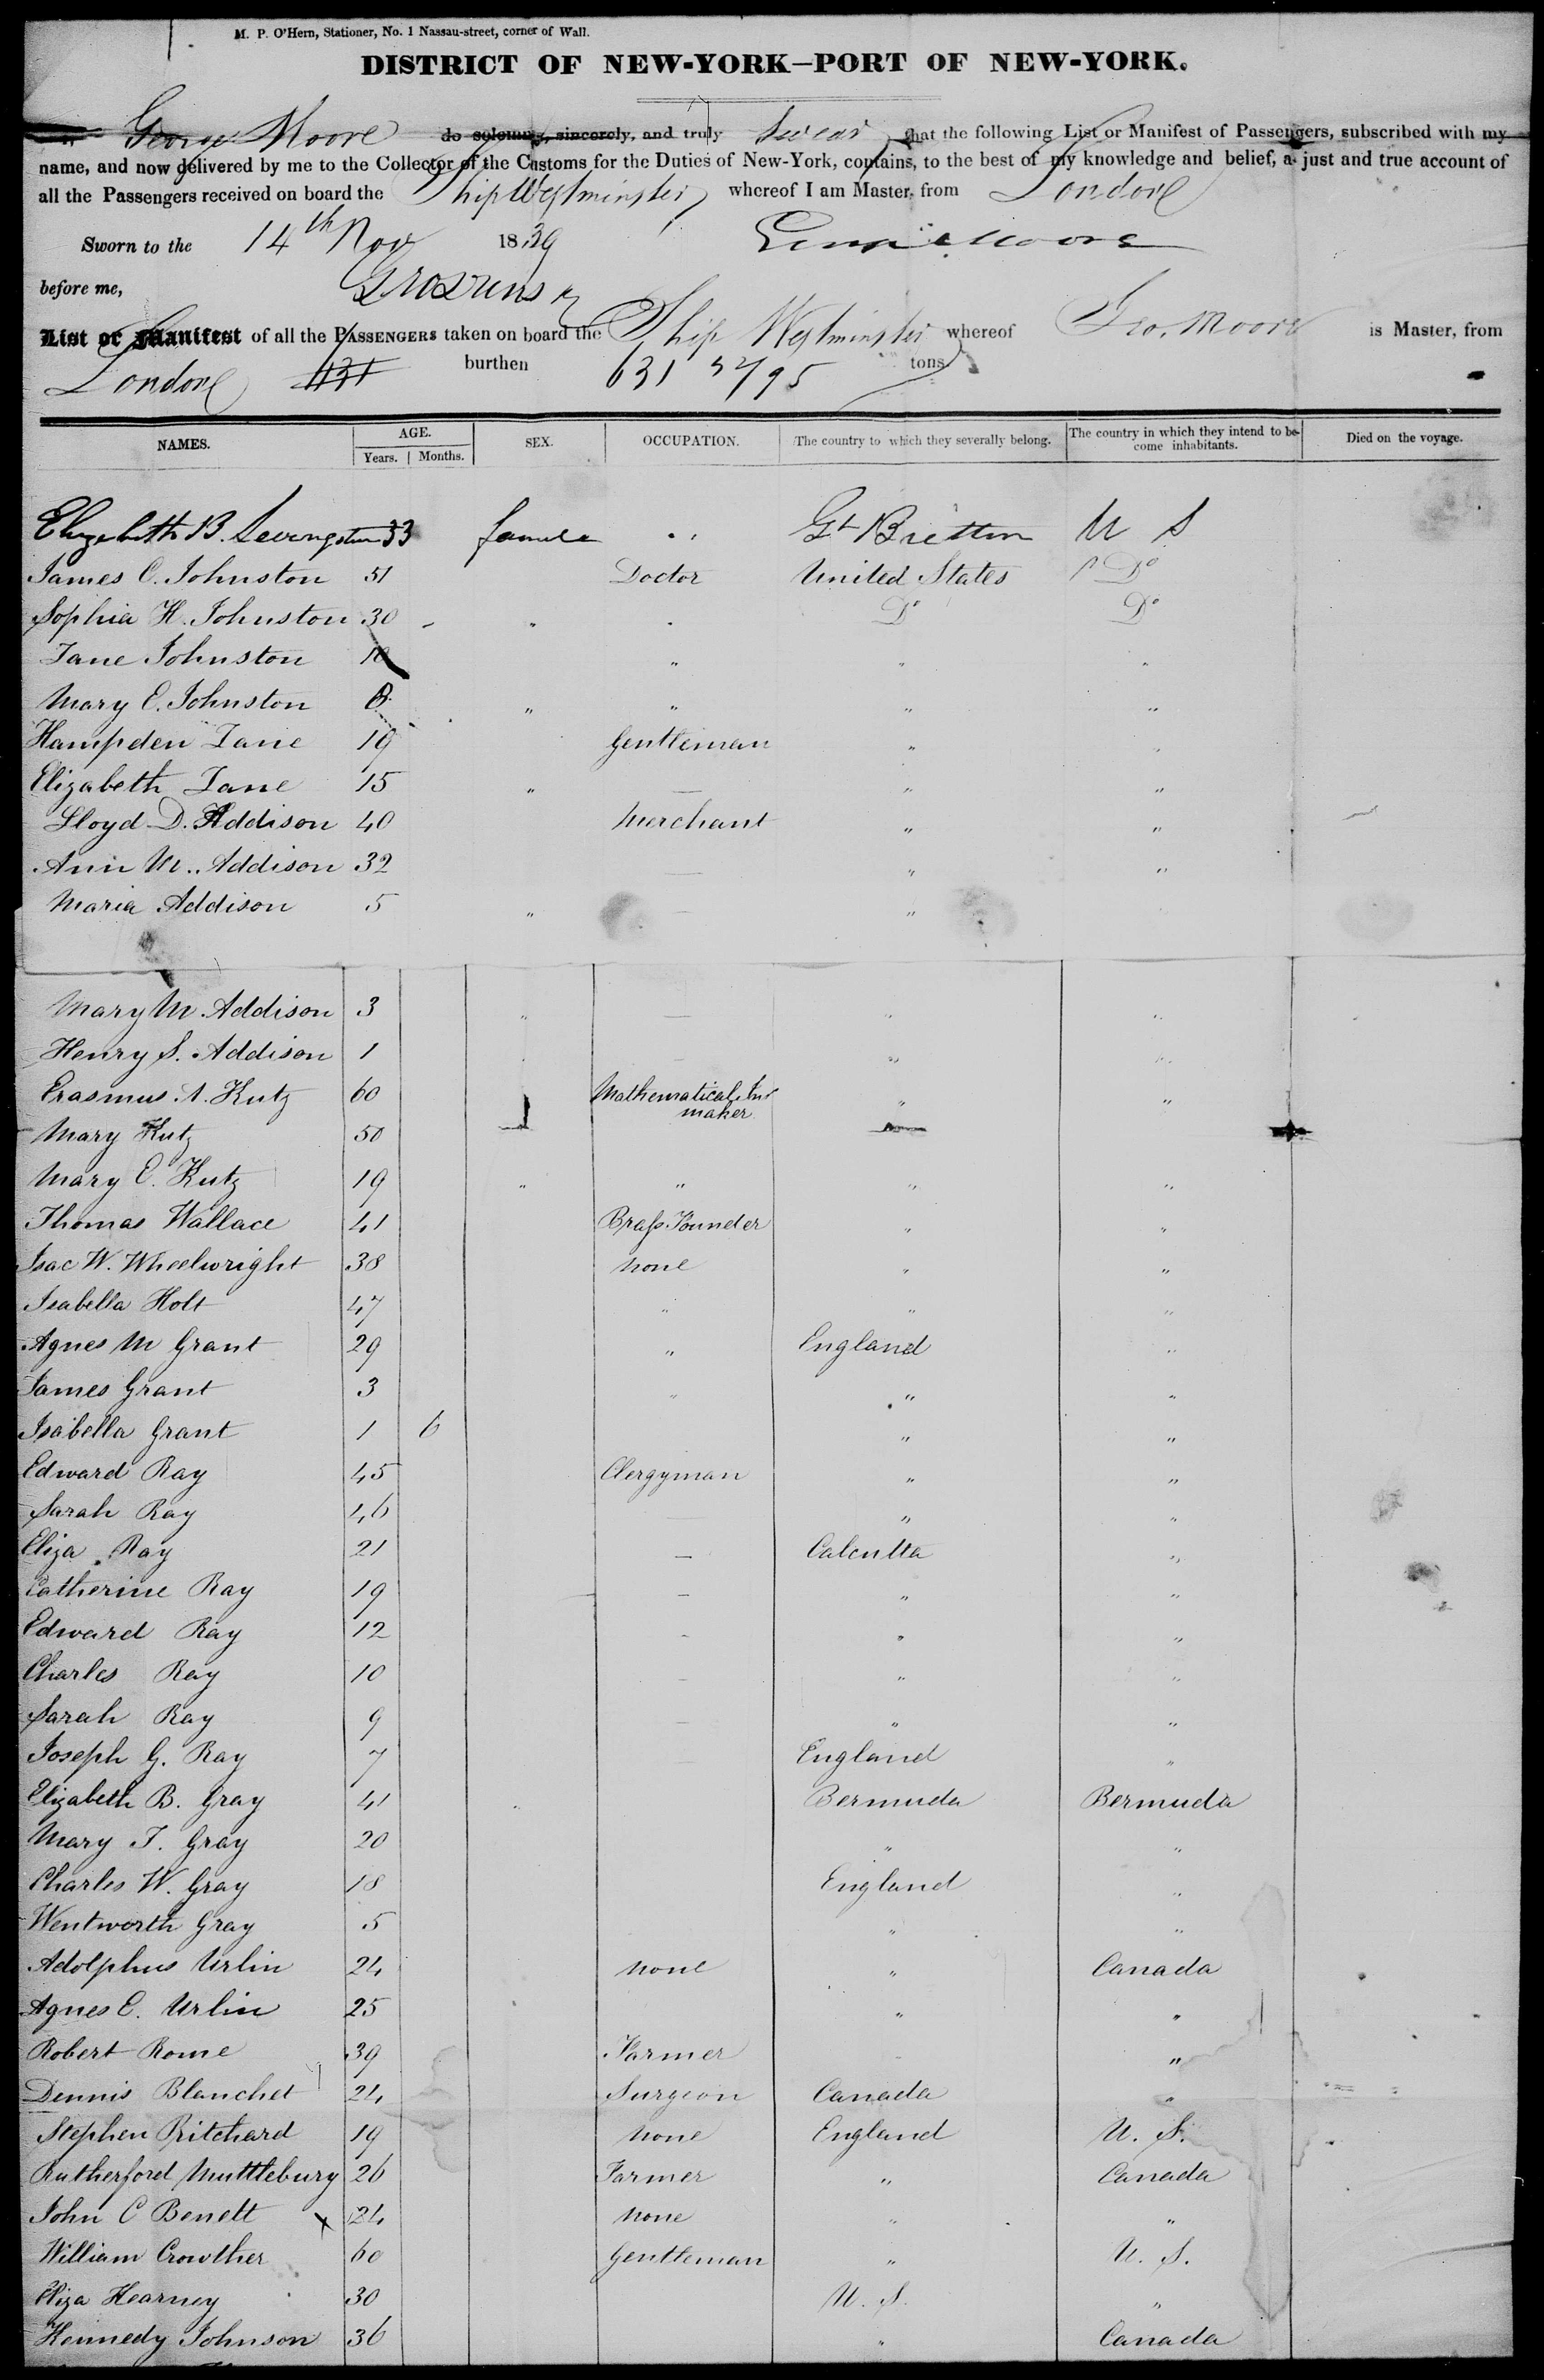 M. P. O'Hern, Stationer, No. 1 Nassau-street, corner of Wall.
DISTRICT OF NEW-YORK—PORT OF NEW-YORK.
George Moore do solemnly, sincerely, and truly swear that the following List or Manifest of Passengers, subscribed with my
name, and now delivered by me to the Collector of the Customs for the Duties of New-York, contains, to the best of my knowledge and belief, a just and true account of
all the Passengers received on board the Ship Westminster whereof I am Master, from London
Sworn to the 14th Nov 1839 George Moore
before me,
List or Manifest of all the PASSENGERS taken on board the Ship Westminster whereof Geo. Moore is Master, from
London burthen 631 tons.
NAMES. AGE. Years. Months. SEX. OCCUPATION. The country to which they severally belong. The country in which they intend to become inhabitants. Died on the voyage.
Elizabeth B. Levingston 33 female " Gt Bretton U S
James C. Johnston 51 Doctor United States Do
Sophia H. Johnston 30 " Do Do
Jane Johnston 10 " " "
Mary E. Johnston 8 " " " "
Hampden Lane 19 Gentleman " "
Elizabeth Lane 15 " — " "
Lloyd D. Addison 40 Merchant " "
Ann M. Addison 32 — " "
Maria Addison 5 " — "
Mary M. Addison 3 " — " "
Henry S. Addison 1 — " "
Erasmus A. Kutz 60 Mathematical Inr maker " "
Mary Kutz 50
Mary E. Kutz 19 " " " "
Thomas Wallace 41 Brass Founder " "
Isac W. Wheelwright 38 None " "
Isabella Holt 47 " " "
Agnes M Grant 29 " England "
James Grant 3 " " "
Isabella Grant 1 6 " "
Edward Ray 45 Clergyman " "
Sarah Ray 46 — " "
Eliza Ray 21 — Calcutta "
Catherine Ray 19 — " "
Edward Ray 12 - " "
Charles Ray 10 — " "
Sarah Ray 9 — " "
Joseph G. Ray 7 — England "
Elizabeth B. Gray 41 Bermuda Bermuda
Mary T. Gray 20 " "
Charles W. Gray 18 England "
Wentworth Gray 5 " "
Adolphus Urlin 24 None " Canada
Agnes E. Urlin 25 " "
Robert Rome 39 Farmer "
Dennis Blanchet 24 Surgeon Canada "
Stephen Pritchard 19 None England U. S.
Rutherford Muttlebury 26 Farmer " Canada
John C Benett 24 None " "
William Crowther 60 Gentleman " U. S.
Eliza Hearney 30 U. S. "
Kennedy Johnson 36 " Canada